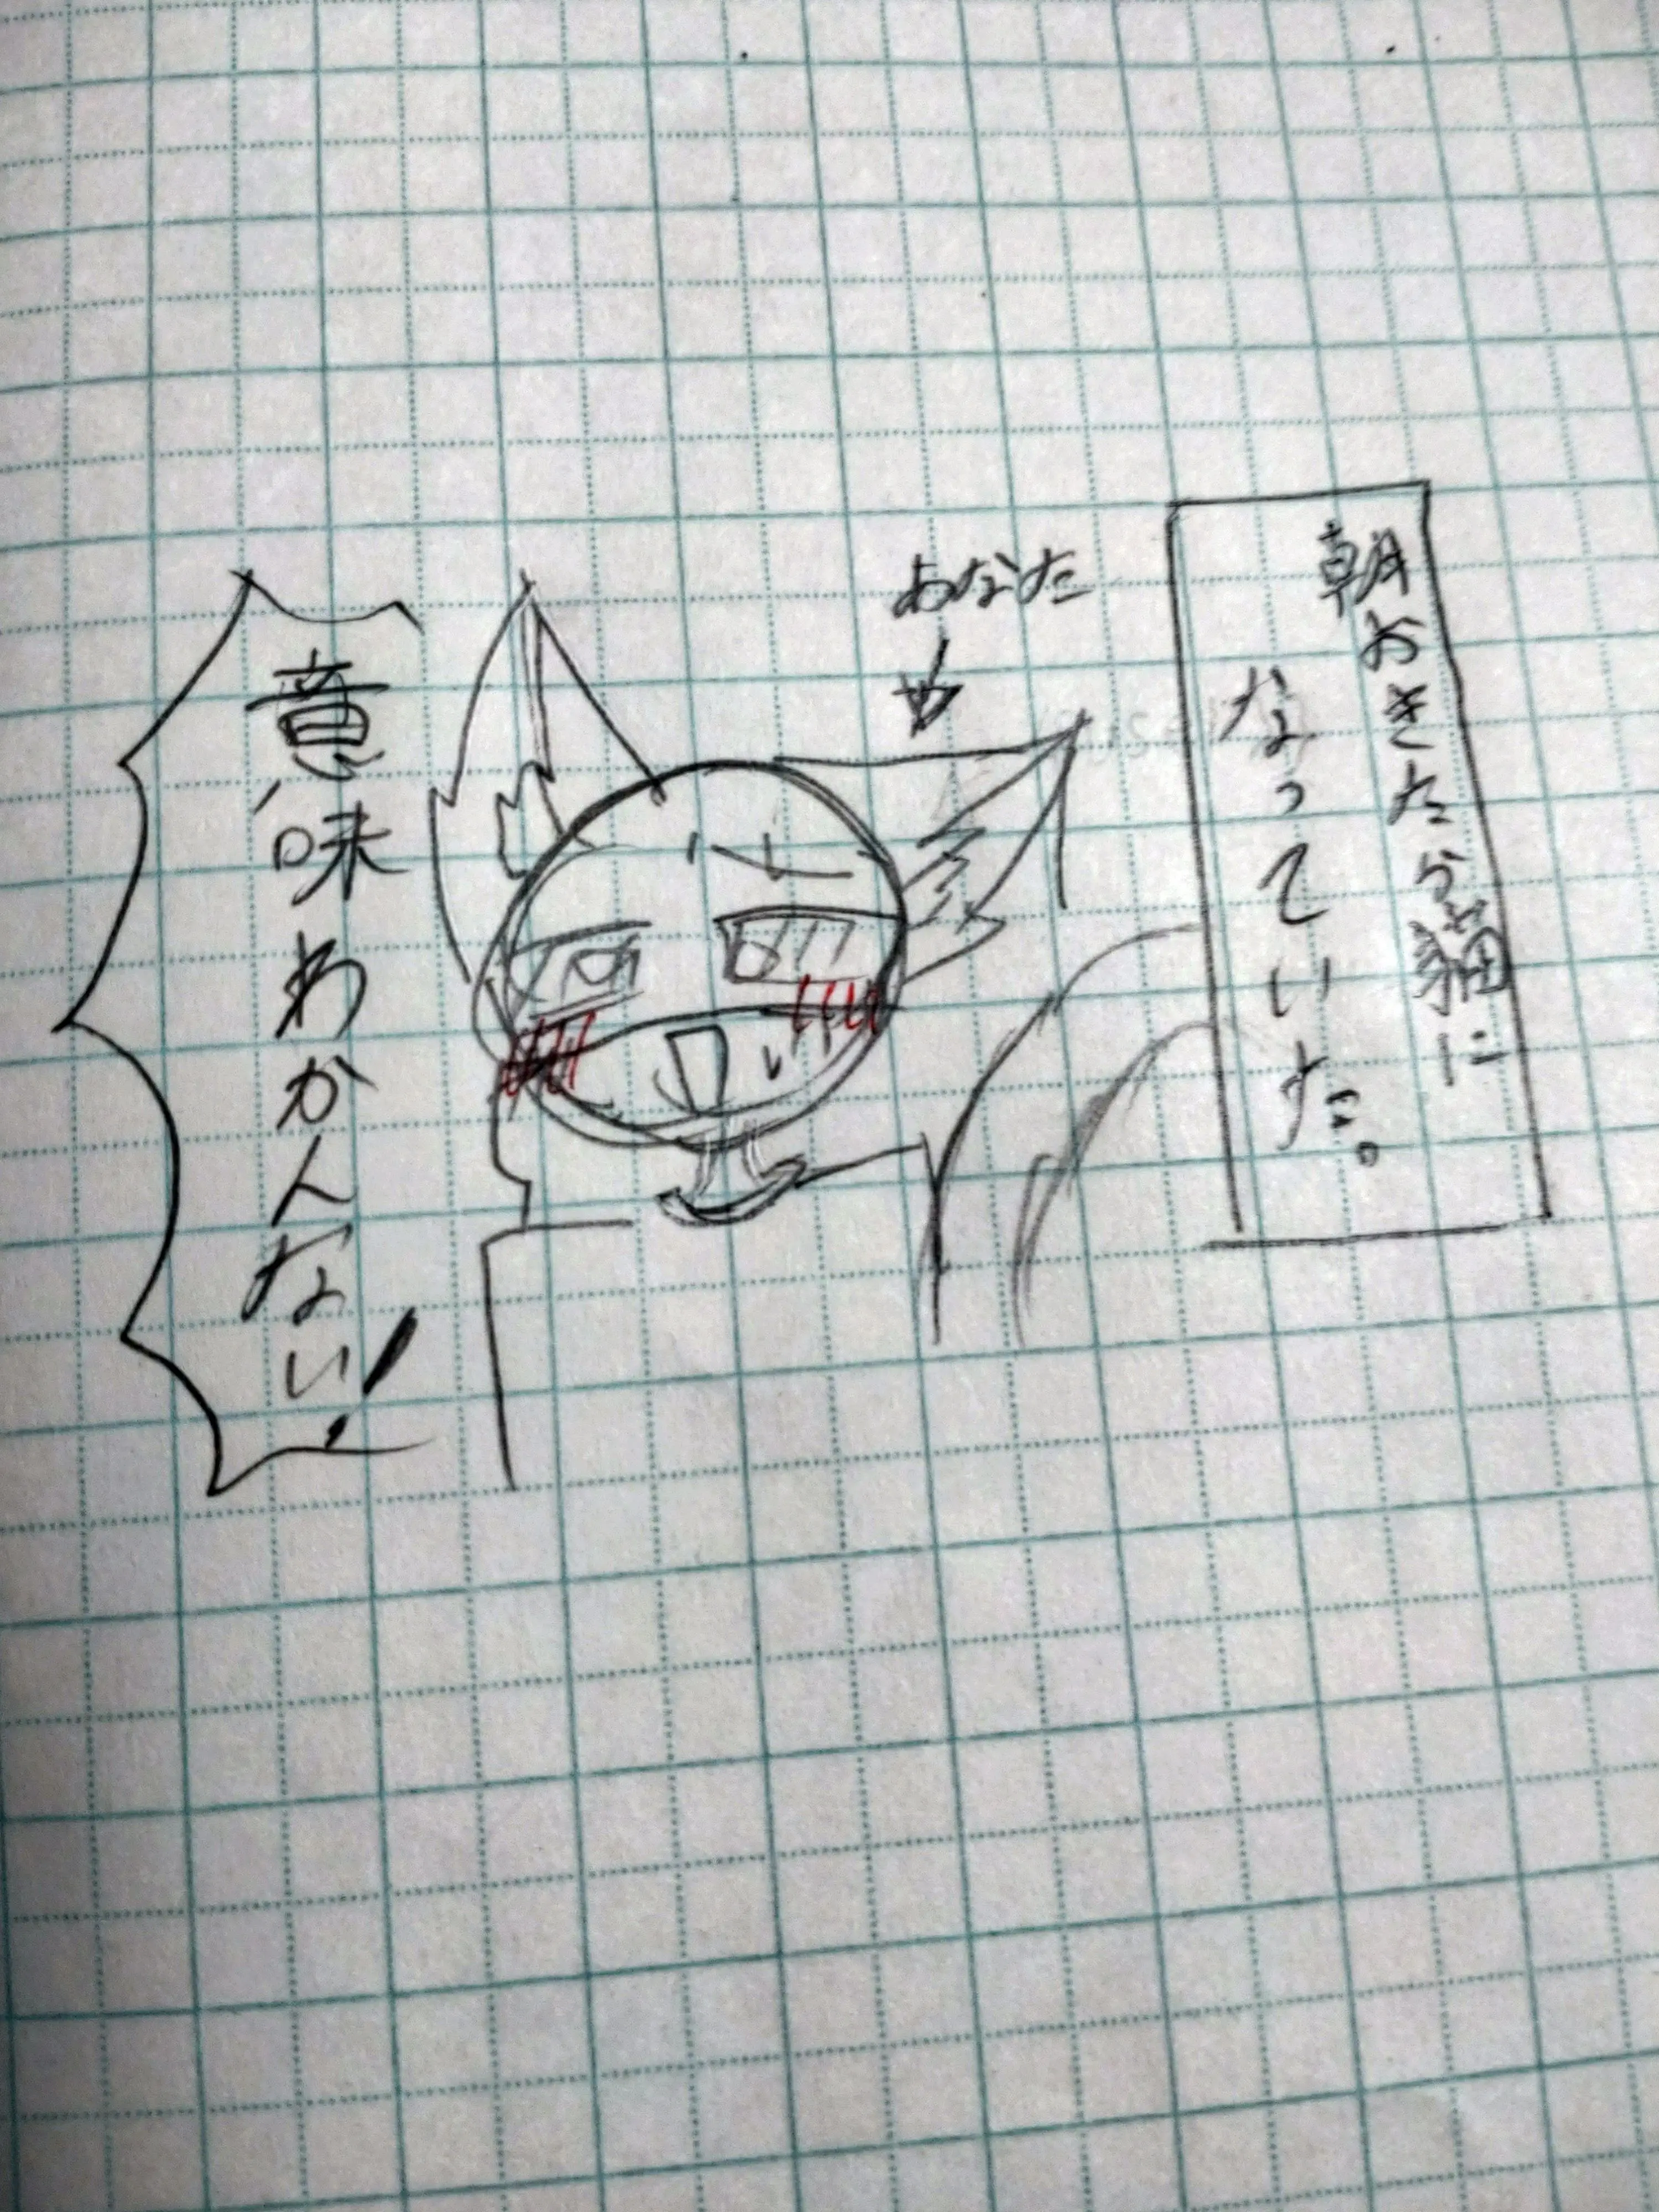 朝おきたら猫に
なっていた。
あなた
意味わかんない!